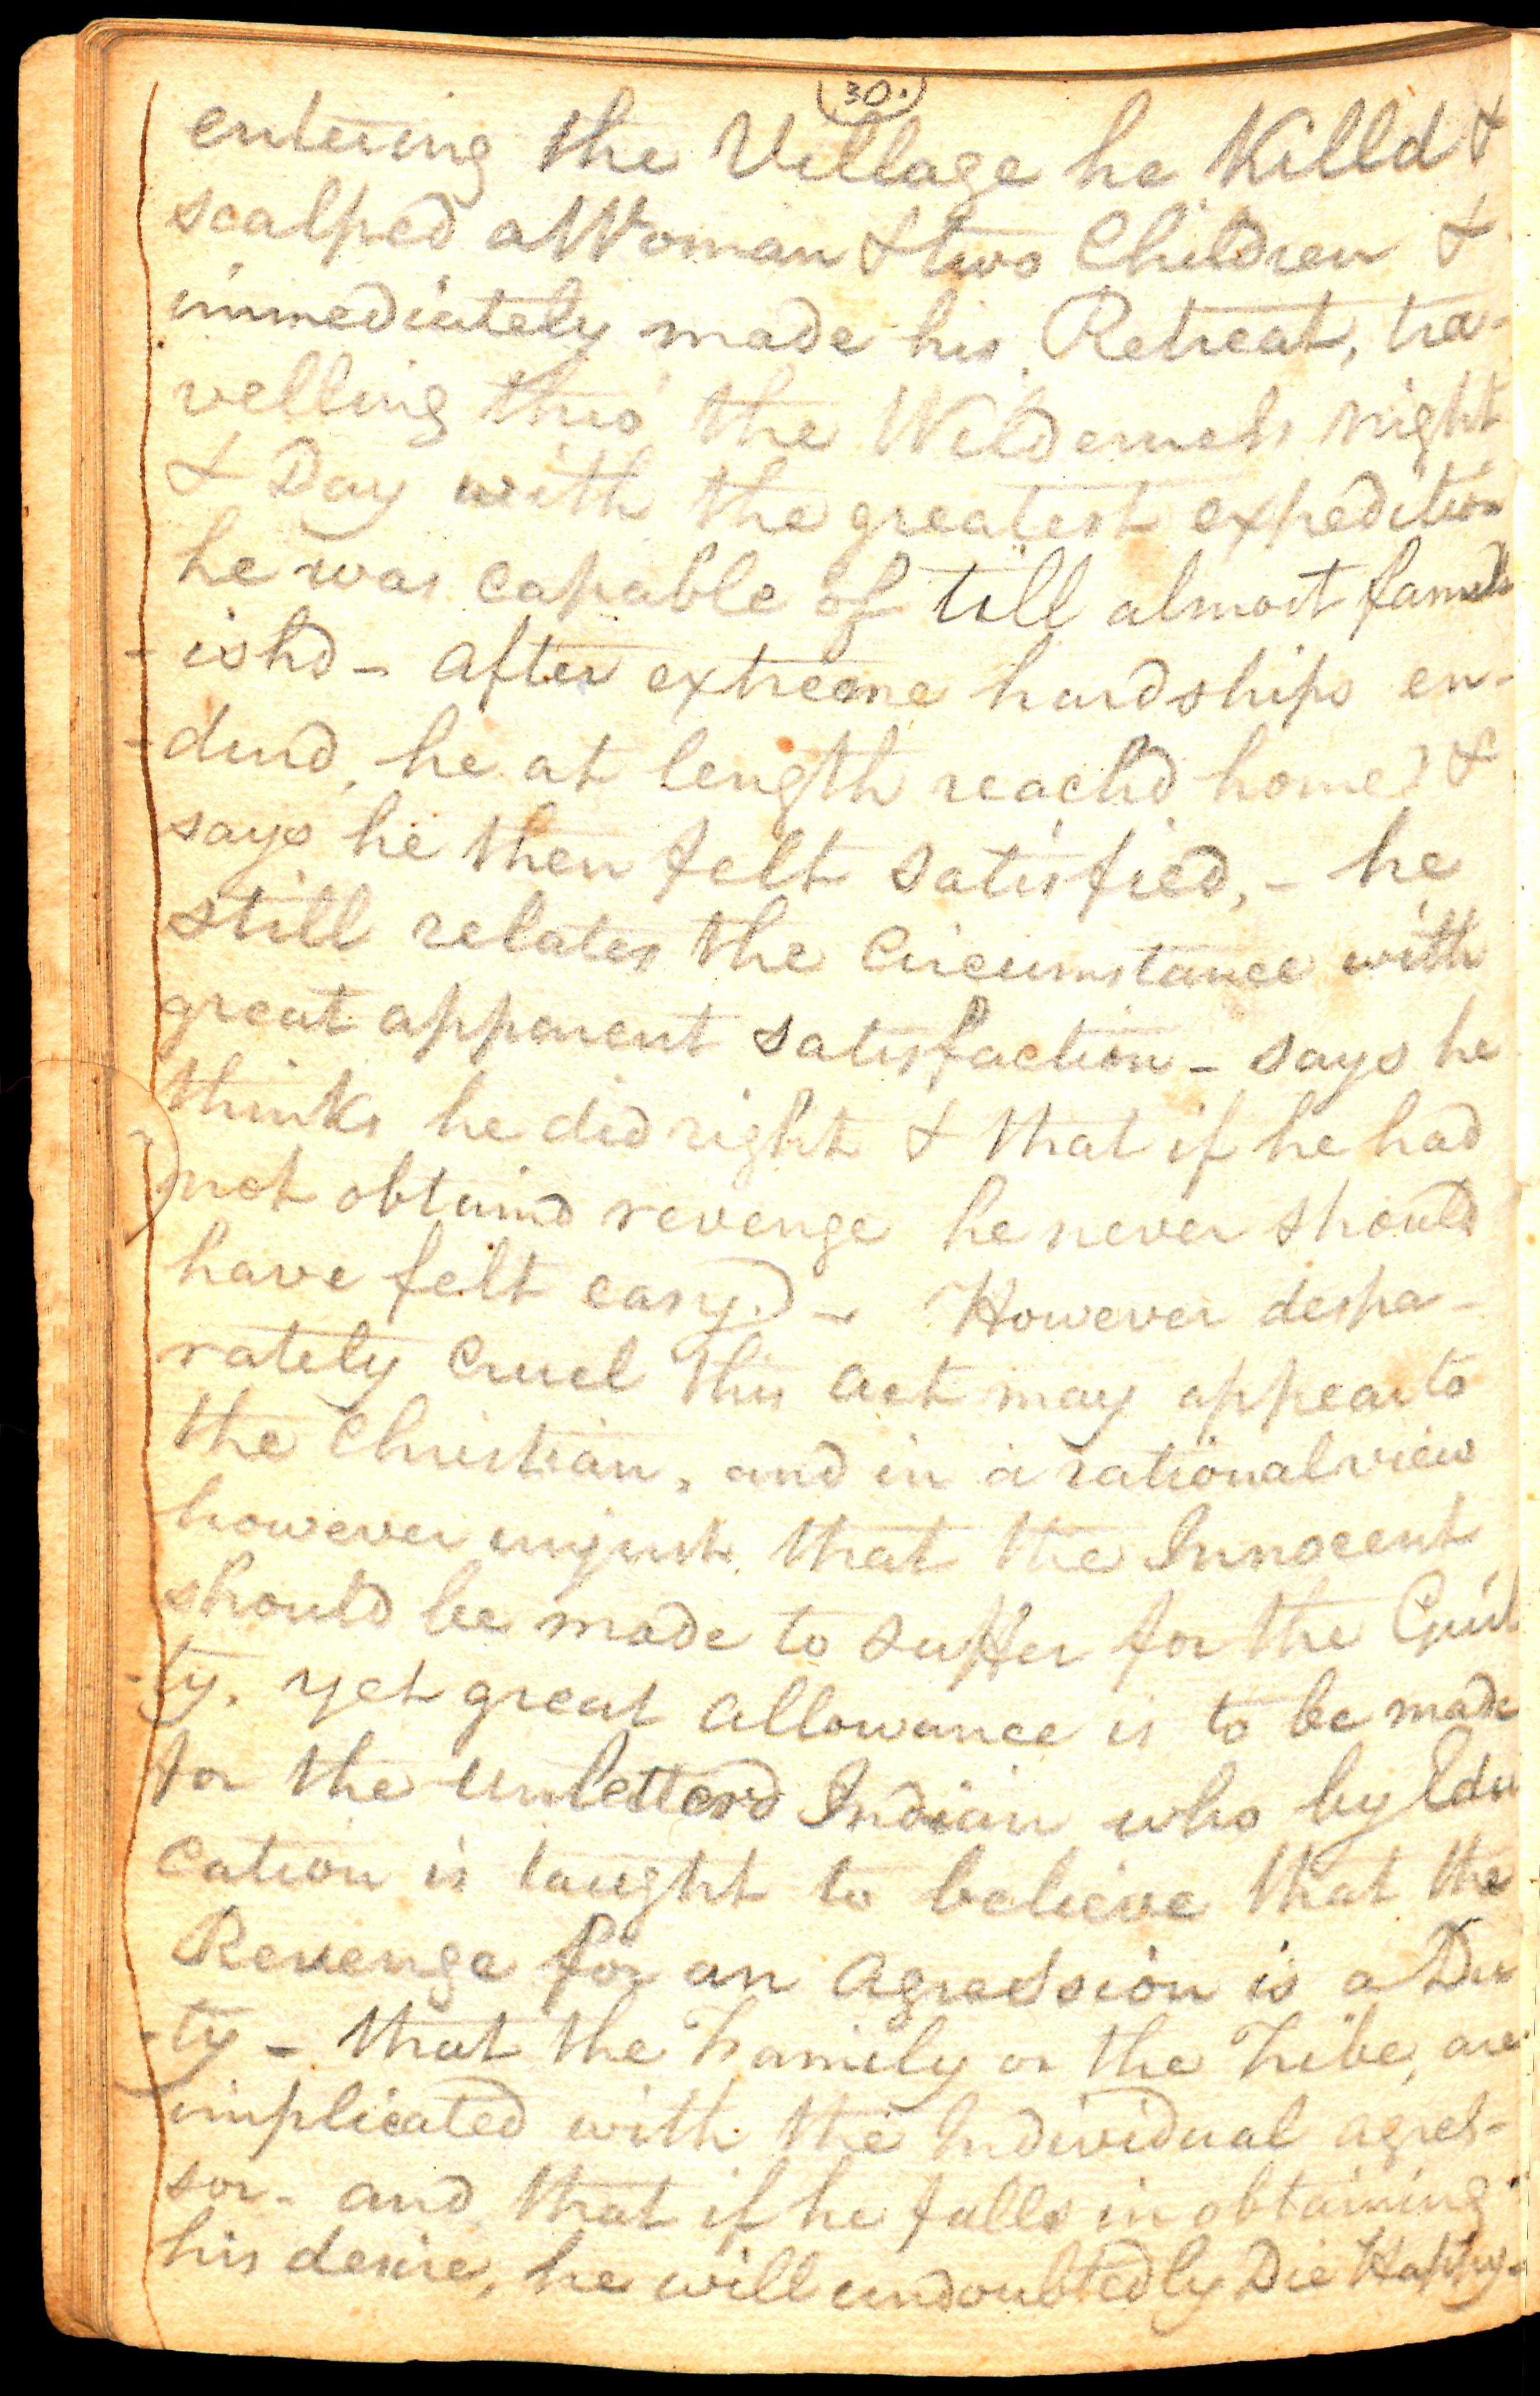 30.
entering the Village he Killd &
scalped a Woman & two Children &
immediately made his Retreat, tra-
velling thro' the Wilderness night
& Day with the greatest expedition
he was capable of till almost fam
- ishd - after extreeme hardships en-
- durd, he at length reachd home) &
says he then felt satisfied, - he
still relates the Circumstance with
great apparent satisfaction - says he
thinks he did right & that if he had
not obtaind revenge he never should
have felt easy.) - However despa-
rately Cruel this act may appear to
the Christian, and in a rational view
however unjust that the Innocent
should be made to suffer for the Guil
- ty. yet great allowance is to be made
for the Unletterd Indian who by Edu
cation is taught to believe that the
Revenge for an agression is a Du
- ty - that the Family or the Tribe, are
implicated with the Individual agres-
sor - and that if he falls in obtaining
his desire, he will undoubtedly Die Happy -